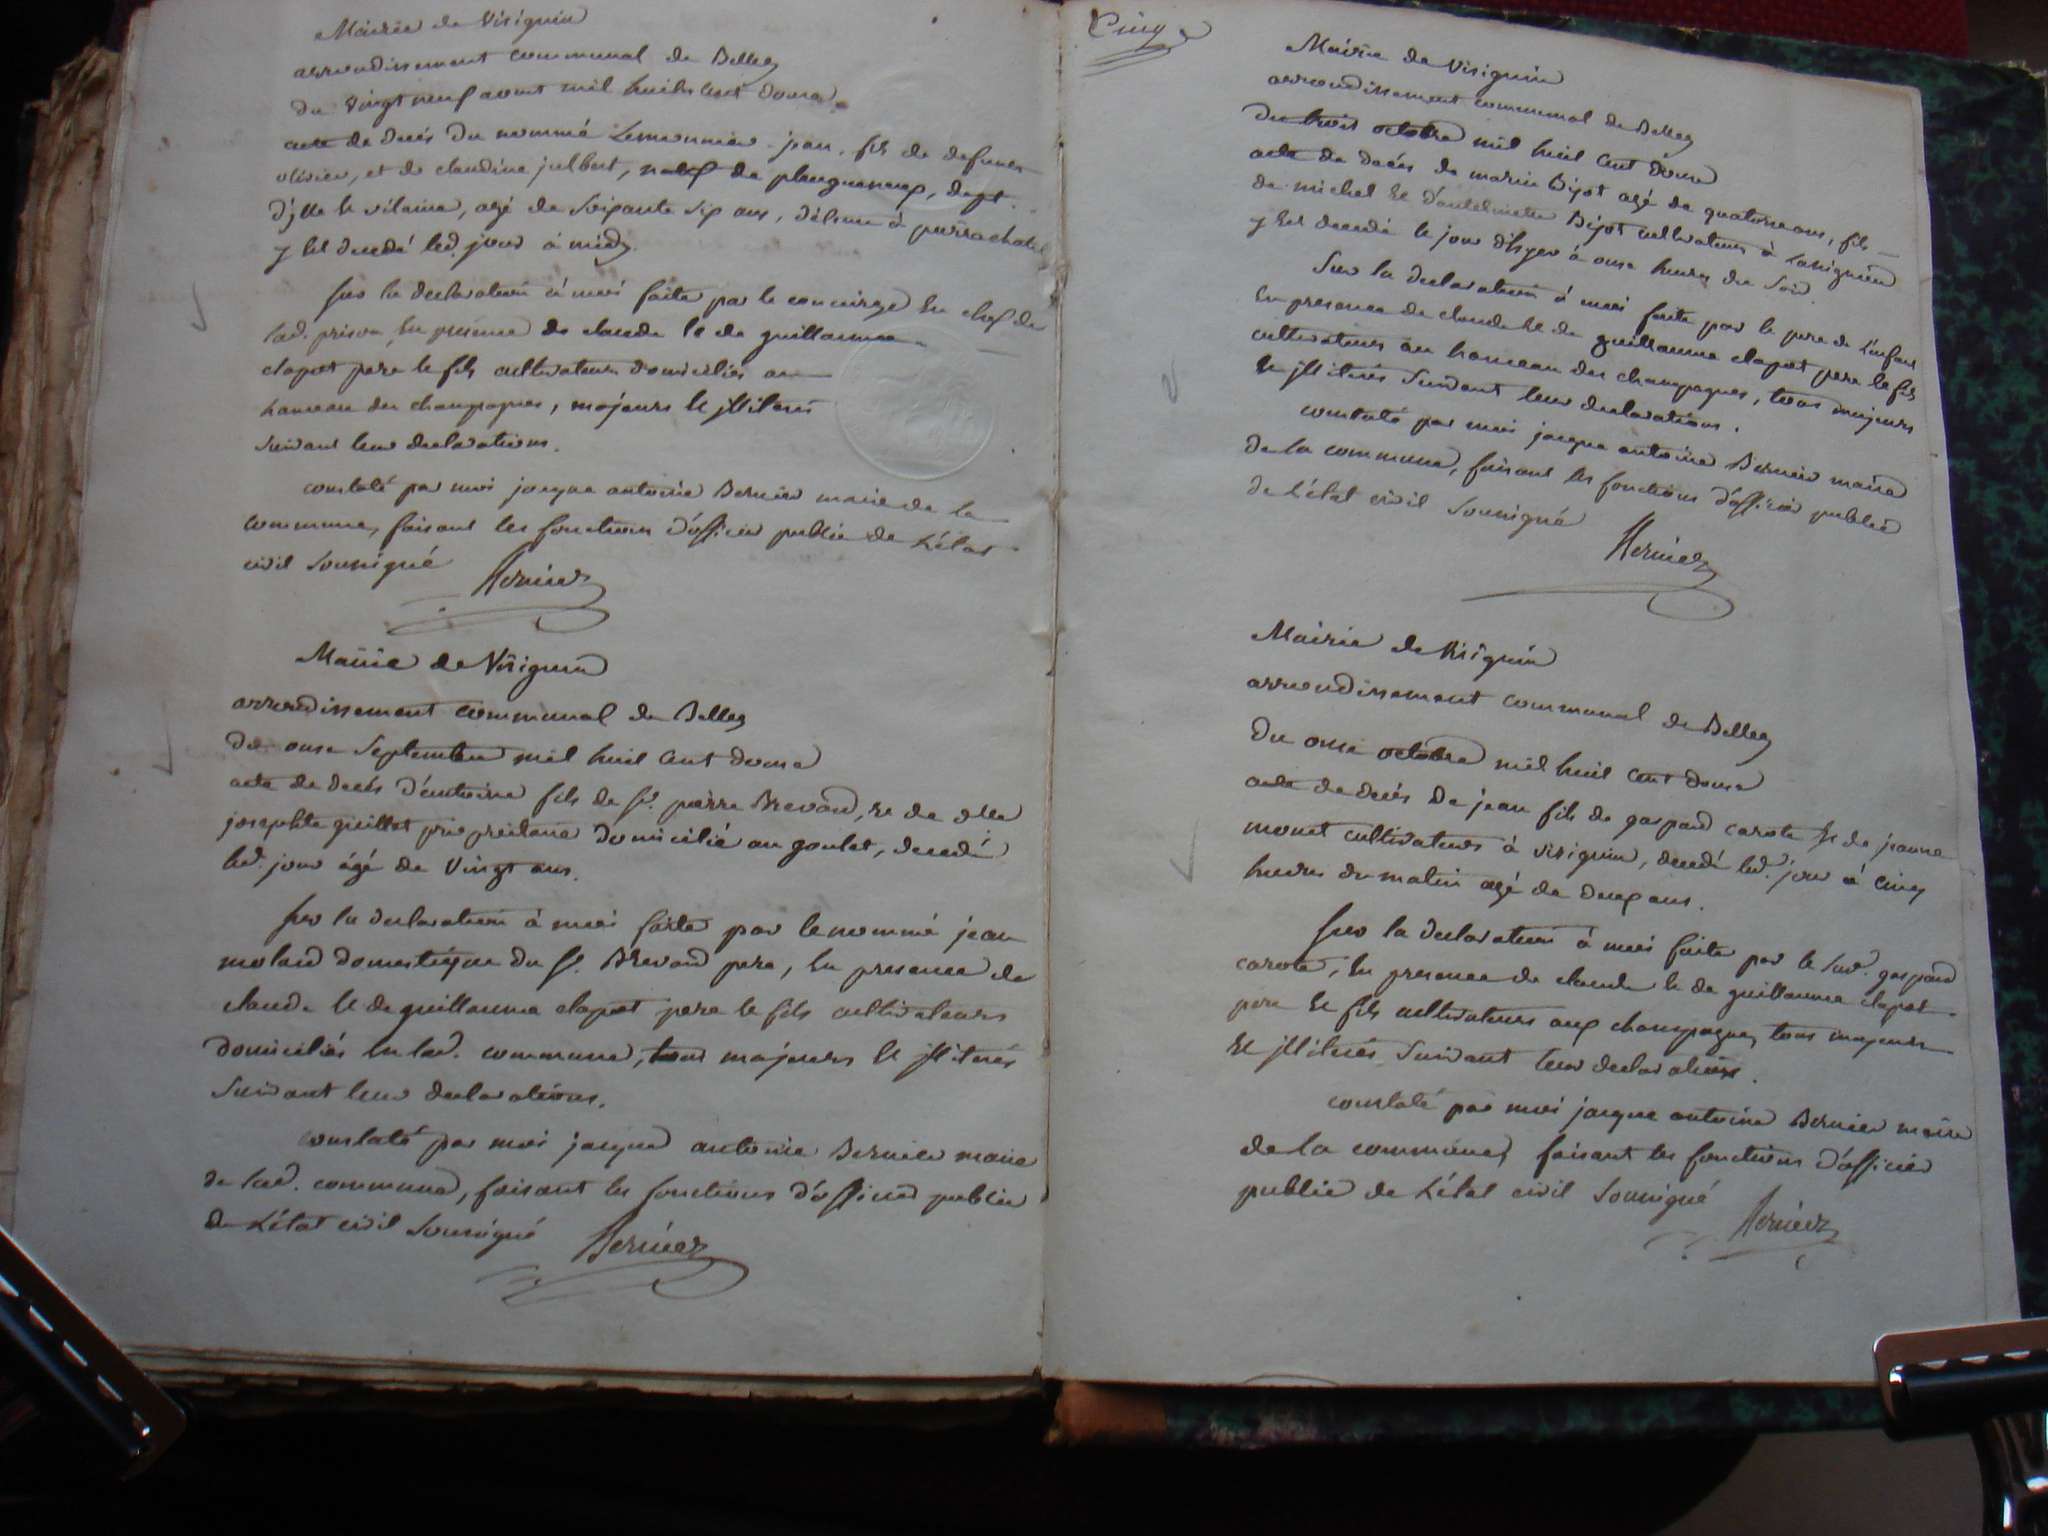 Mairie de Virignin
arrondissement communal de Belley
du vingt neuf aout mil huit cent douze
acte de decés du nommé Lemonnier jean, fils de defunts
olivier, et de claudine julbert, natif de plouguenoup, dept
d'jlle et vilaine, agé de soixante six ans, détenu à pierrechatel
y est decedé led. jour à midy.
sur la declaration à moi faite par le concierge en chef de
lad. prison, en presence de claude et de guillaume
clapet pere et fils cultivateurs domiciliés au
hameau des champagnes, majeurs et jlliterés
suivant leur declarations.
constaté par moi jacque antoine Bernier maire de la
commune, faisant les fonctions d'officier public de L'état
civil soussigné Bernier
Mairie de Virignin
arrondissement communal de Belley
du onze septembre mil huit cent douze
acte de decés d'antoine fils de sr. pierre Brevard, et de dlle
josephte guillot propriétaire domicilié au goulet, decedé
led. jour agé de vingt ans.
sur la declaration à moi faite par le nommé jean
molard domestique du sr. Brevard pere, en presence de
claude et de guillaume clapet pere et fils cultivateurs
domiciliés en lad. commune, tous majeurs et jlliterés
suivant leur declarations.
constaté par moi jacque antoine Bernier maire
de lad. commune, faisant les fonctions d'officier public
de L'état civil soussigné Bernier
Cinq
Mairie de Virignin
arrondissement communal de Belley
du trois octobre mil huit cent douze
acte de decés de marie Bijot agé de quatorze ans, fils
de michel et d'antelmette Bijot cultivateurs à Lassignieu
y est decedé le jour d'hyer à onze heures du soir.
sur la declaration à moi faite par le pere de L'enfant
en presence de claude et de guillaume clapet pere et fils
cultivateurs au hameau des champagnes, tous majeurs
et jlliterés suivant leur declarations.
constaté par moi jacque antoine Bernier maire
de la commune, faisant les fonctions d'officier public
de L'état civil soussigné
Bernier
Mairie de Virignin
arrondissement communal de Belley
du onze octobre mil huit cent douze
acte de decés de jean fils de gaspard carote et de jeanne
monet cultivateurs à virignin, decedé led. jour à cinq
heures du matin agé de deux ans.
sur la declaration à moi faite par le sud. gaspard
carote, en presence de claude et de guillaume clapet
pere et fils cultivateurs aux champagnes, tous majeurs
et jlliterés suivant leur declarations.
constaté par moi jacque antoine Bernier maire
de la commune, faisant les fonctions d'officier
public de L'état civil soussigné
Bernier